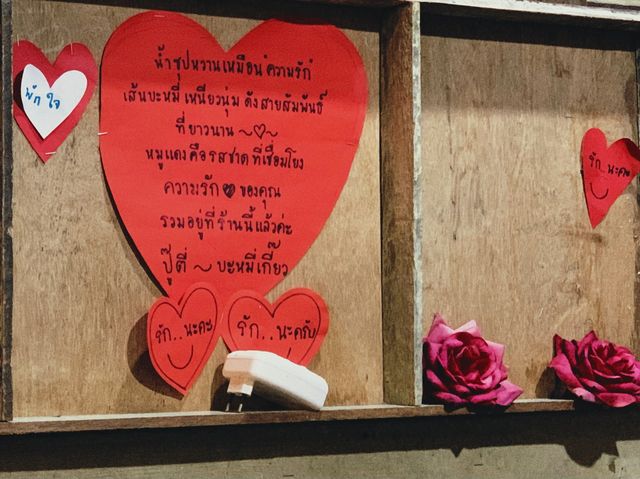 พัก ใจ
น้ำซุปหวานเหมือน ความรัก
เส้นบะหมี่ เหนียวนุ่ม ดังสายสัมพันธ์
ที่ยาวนาน ~♡~
หมูแดงคือรสชาติ ที่เชื่อมโยง
ความรัก ♥ ของคุณ
รวมอยู่ที่ร้านนี้แล้วค่ะ
ปู๊ตี่ ~ บะหมี่เกี๊ยว
รัก..นะคะ
รัก..นะครับ
รัก..นะคะ